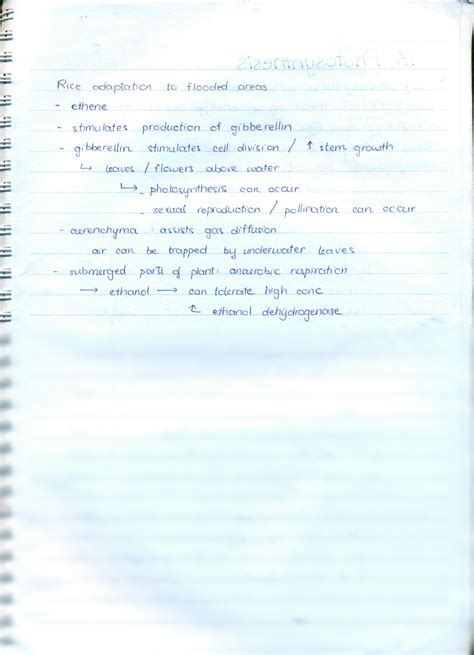 Rice adaptation to flooded areas
- ethene
- stimulates production of gibberellin
- gibberellin stimulates cell division / ↑ stem growth
↳ leaves / flowers above water
↳ - photosynthesis can occur
- sexual reproduction / pollination can occur
- aerenchyma : assists gas diffusion
air can be trapped by underwater leaves
- submerged parts of plant : anaerobic respiration
→ ethanol → can tolerate high conc
↑ ethanol dehydrogenase